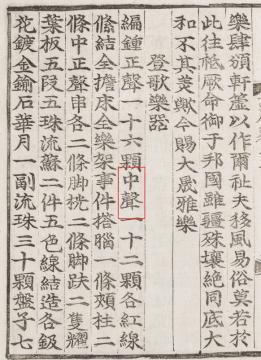 樂肆頒軒簴以作爾祉夫移風易俗莫若於
此往祗厥命御于邦國雖疆殊壤絶同底大
和不其美歟今賜大晟雅樂
登歌樂器
編鍾正聲一十六顆中聲一十二顆各紅線
條結全擔床全樂架事件搭腦一條頰柱二
條中正聲串各二條脚桄二條脚趺二隻耀
葉板五段五珠流蘇二件五色線結造各鈒
花鍍金鍮石華月一副流珠三十顆盤子七